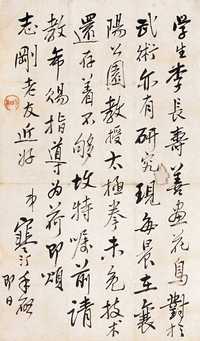 學生李長壽善畫花鳥對於
武術亦有研究現每晨在襄
陽公園教授太極拳未免技术
還存着不够故特嘱前請
教希賜指導为荷即頌
志剛老友近好
弟 寒汀手啟
即日